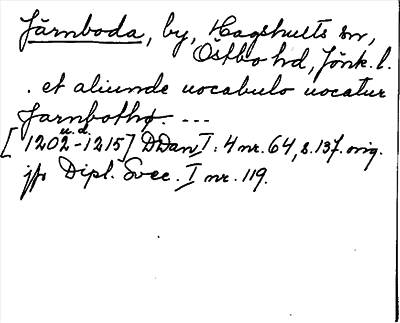 Järnboda, by, Hagshults sn,
Östbo hd, Jönk. l.
. et aliunde uocabulo uocatur
Jarnbothø. ---
[1202-1215] u.d. DDan I: 4 nr. 64, s. 137. orig.
jfr Dipl. Svec. I nr. 119.